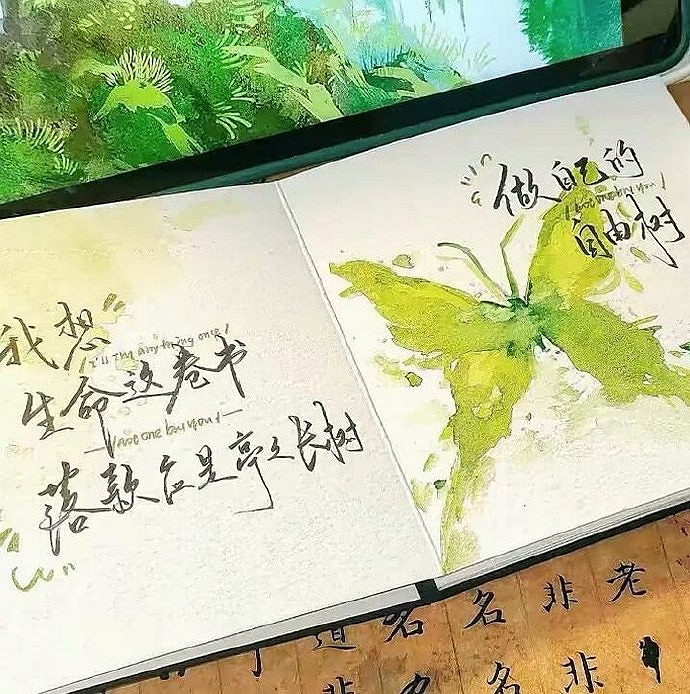 我想
I'll try anything once!
生命这卷书
落款应是亭亭长树
"做自己的
自由树
道 名 名 非 老
名 名 非